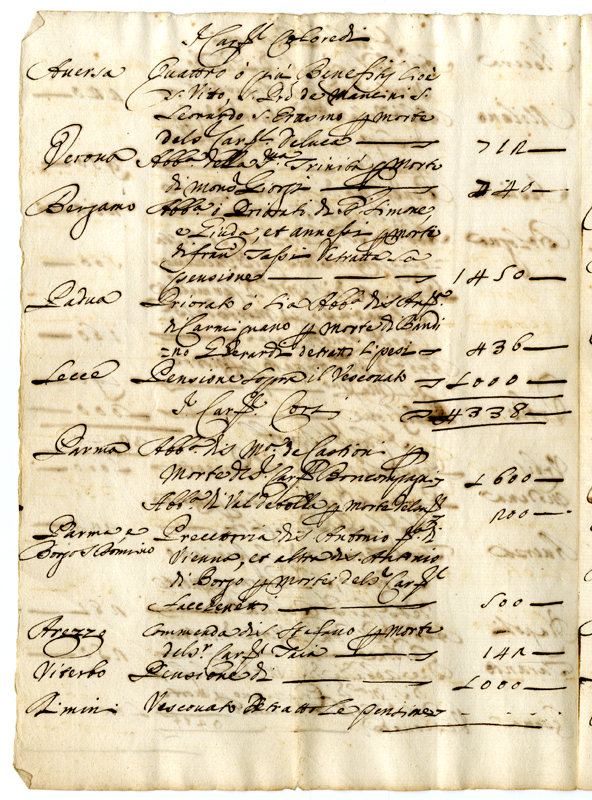 Il Card.l Coloredi
Aversa Quatoro ó piú Benefitij cioè
S. Vito, S. de Mancini S.
Leonardo S. Erasmo p Morte
del S. Card.l Deluca 712
Verona Abb.a della SS.ma Trinità p Morte
di Mons.r Giorgi 440
Bergamo Abb.a o Priorati di S. Simone,
e Giuda et annessi p Morte
di fran.co Tassi Detratta la
pensione 1450
Padua Priorato ó sia Abb.a di S.
di Carmignano p Morte di Bandi
=no detratti li pesi 436
Lecce Pensione sopra il Vescovato 1000
Il Card.l Cori 4338
Parma Abb.a di S. M.a de Castioni p
Morte del S. Card.l Boncompagni 1600
Abb.a di Val de Tolla p Morte 200
Parma, e Precettoria di S. Antonio di
Borgo S. Donnino Vienna, et altra di S. Antonio
di Borgo p Morte del S. Card.l
Facchenetti 500
Arezzo Commenda di S. Stefano p Morte
del S.r Card.l Taia 142
Viterbo Pensione di 1000
Rimini Vescovato Detratto le pensione